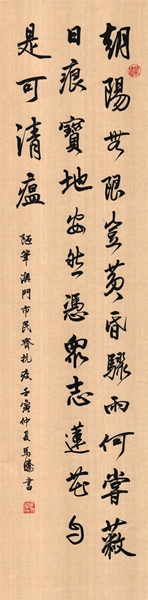 朝陽無限豈黃昏驟雨何嘗蔽
日痕寶地安然憑眾志蓮花自
是可清瘟
陋筆澳門市民齊抗疫壬寅仲夏馬騰書